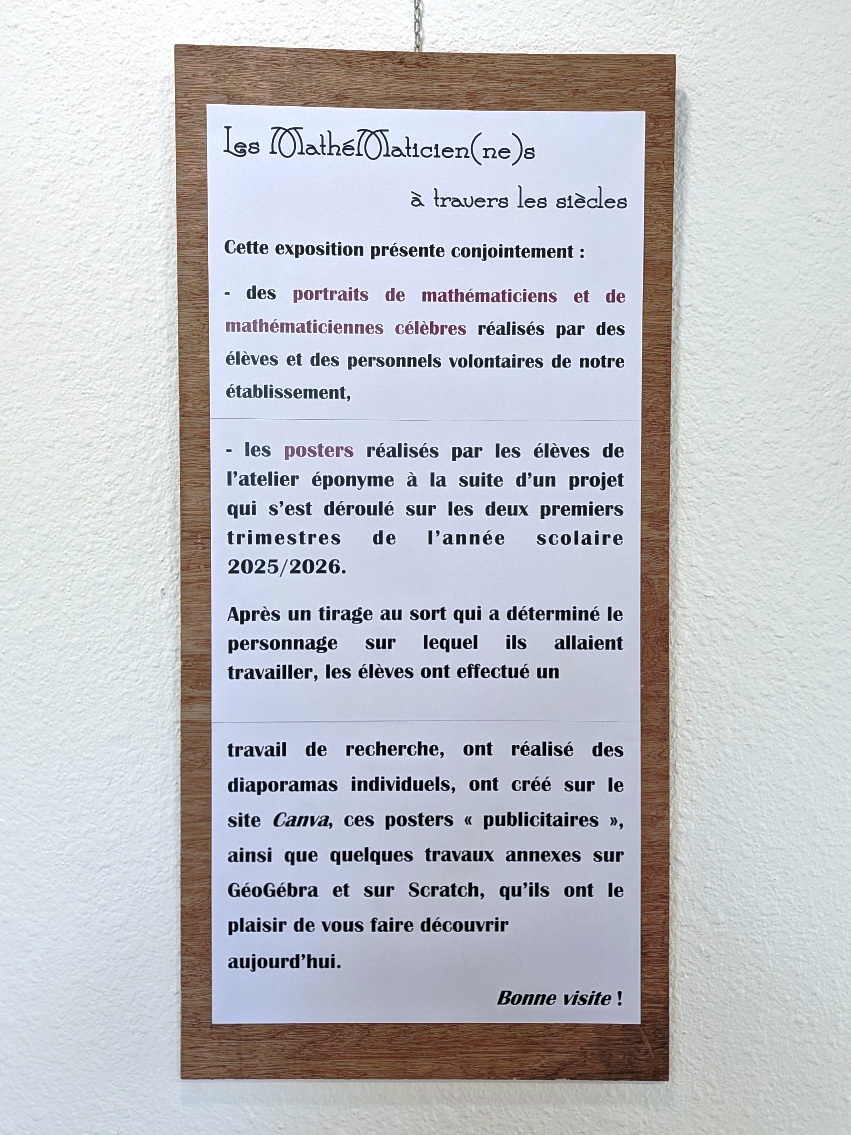 Les MathéMaticien(ne)s
à travers les siècles
Cette exposition présente conjointement :
- des portraits de mathématiciens et de
mathématiciennes célèbres réalisés par des
élèves et des personnels volontaires de notre
établissement,
- les posters réalisés par les élèves de
l’atelier éponyme à la suite d’un projet
qui s’est déroulé sur les deux premiers
trimestres de l’année scolaire
2025/2026.
Après un tirage au sort qui a déterminé le
personnage sur lequel ils allaient
travailler, les élèves ont effectué un
travail de recherche, ont réalisé des
diaporamas individuels, ont créé sur le
site Canva, ces posters « publicitaires »,
ainsi que quelques travaux annexes sur
GéoGébra et sur Scratch, qu’ils ont le
plaisir de vous faire découvrir
aujourd’hui.
Bonne visite !